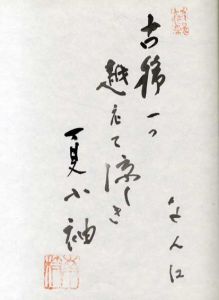 古稀一つ
越えて涼しき
夏小袖